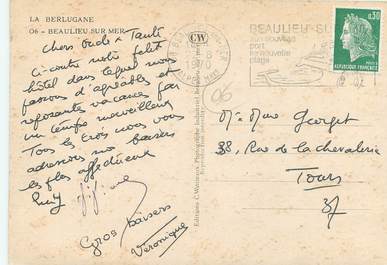 LA BERLUGANE
06 - BEAULIEU SUR MER
Chers Oncle & Tante
Ci-contre notre petit
hôtel dans lequel nous
passons d'agréables et
reposantes vacances par
un temps merveilleux
Tous les trois nous vous
adressons nos baisers
les plus affectueux
Gros baisers
Véronique
CW
1970
BEAULIEU-SU
son nouveau
port
sa nouvelle
plage
0,30
REPUBLIQUE FRANCAISE
06
M. Mme Georget
38, Rue de la Chevalerie
Tours
37